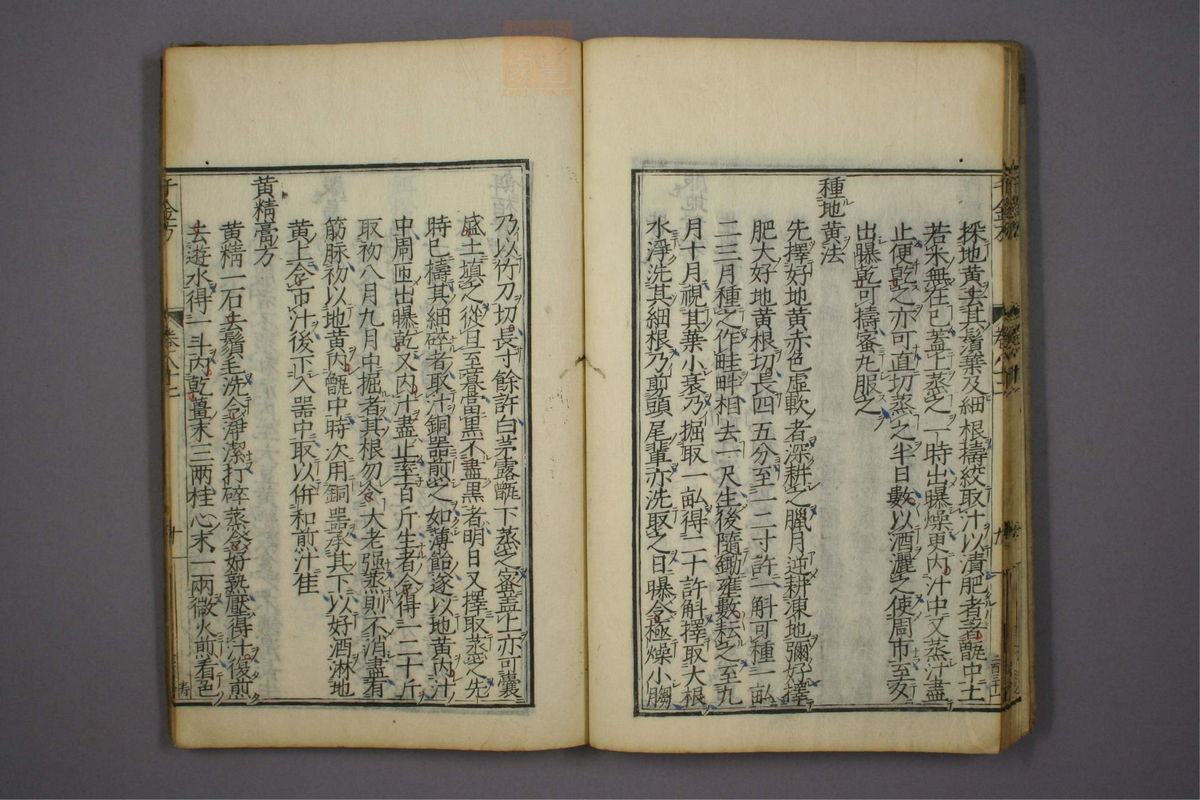 採地黄去其鬚葉及細根擣絞取汁以漬肥者著甑中土
若米無在已盖上蒸之一時出曝燥更内汁中又蒸汁盡
止便乾之亦可直切蒸之半日數以酒灑之使周帀至夜
出曝乾可擣蜜丸服之
種地黄法
先擇好地黄赤色虚軟者深耕之臘月逆耕凍地彌好擇
肥大好地黄根切長四五分至一二寸許一斛可種一畝
二三月種之作畦畤相去一尺生後隨鋤壅數耘之至九
月十月視其葉小衰乃掘取一畝得二十許斛擇取大根
水淨洗其細根乃剪頭尾輩亦洗取之日曝令極燥小䐢
乃以竹刀切長寸餘許白茅露甑下蒸之密盖上亦可囊
盛土填之從旦至暮當黒不盡黒者明日又擇取蒸之先
時已擣其細碎者取汁銅器煎之如薄飴遂以地黄内汁
中周匝出曝乾又内汁盡止率百斤生者令得一二十斤
取初八月九月中掘者其根勿令大老强蒸則不消盡有
筋脉初以地黄内甑中時次用銅器承其下以好酒淋地
黄上令帀汁後下入器中取以併和煎汁佳
黄精膏方
黄精一石去鬚毛洗令淨潔打碎蒸令好熟壓得汁後煎
去遊水得一斗内乾薑末三兩桂心末一兩微火煎看色
千金方
卷八十二